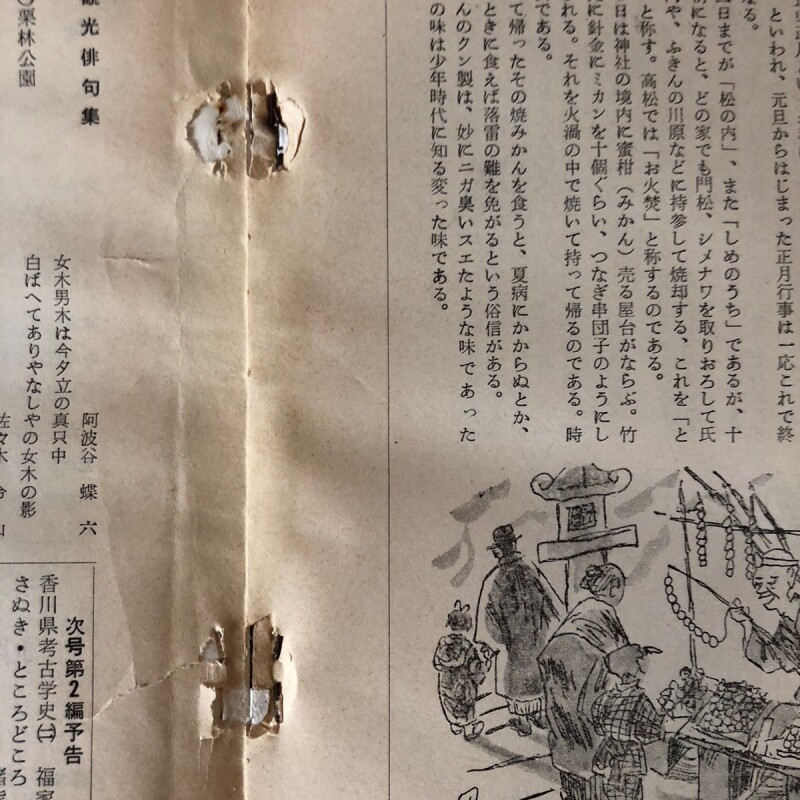 といわれ、元旦からはじまった正月行事は一応これで終
なる。
日までが「松の内」、また「しめのうち」であるが、十
になると、どの家でも門松、シメナワを取りおろして氏
や、ふきんの川原などに持参して焼却する、これを「と
と称す。高松では「お火焚」と称するのである。
日は神社の境内に蜜柑(みかん)売る屋台がならぶ。竹
に針金にミカンを十個ぐらい、つなぎ串団子のようにし
れる。それを火渦の中で焼いて持って帰るのである。時
である。
て帰ったその焼みかんを食うと、夏病にかからぬとか、
ときに食えば落雷の難を免がるという俗信がある。
んのクン製は、妙にニガ臭いスエたような味であった
の味は少年時代に知る変った味である。
観光俳句集
○栗林公園
阿波谷蝶六
女木男木は今夕立の真只中
白ばへてありやなしやの女木の影
佐々木
次号第2編予告
香川県考古学史(二) 福家
さぬき・ところどころ